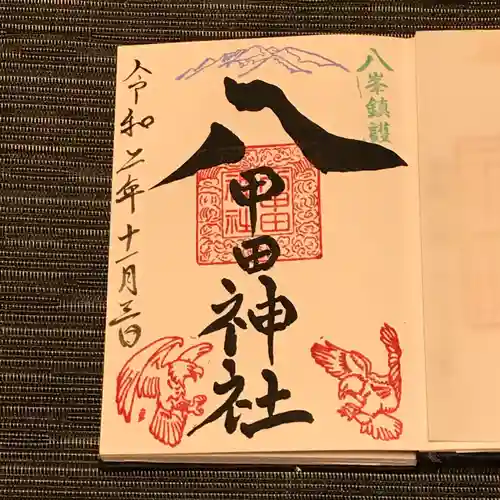 八峯鎮護
八甲田神社
令和二年十一月三日